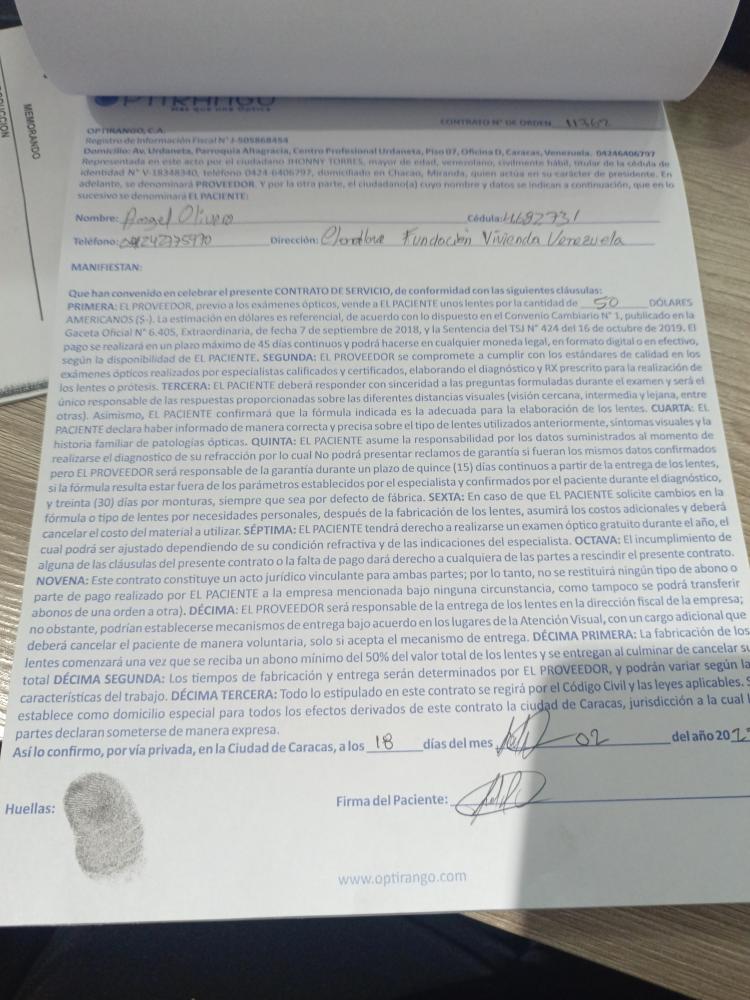 MEMORANDO
OPTIRANGO
Más que una Óptica
CONTRATO N° DE ORDEN 11362
OPTIRANGO, C.A.
Registro de Información Fiscal N° J-505868454
Domicilio: Av. Urdaneta, Parroquia Altagracia, Centro Profesional Urdaneta, Piso 07, Oficina D, Caracas, Venezuela. 04246406797
Representada en este acto por el ciudadano JHONNY TORRES, mayor de edad, venezolano, civilmente hábil, titular de la cédula de
identidad N° V-18348340, teléfono 0424-6406797, domiciliado en Chacao, Miranda, quien actúa en su carácter de presidente. En
adelante, se denominará PROVEEDOR. Y por la otra parte, el ciudadano(a) cuyo nombre y datos se indican a continuación, que en lo
sucesivo se denominará EL PACIENTE:
Nombre: Angel Olivero Cédula: 4682731
Teléfono: Dirección: Fundación Vivienda Venezuela
MANIFIESTAN:
Que han convenido en celebrar el presente CONTRATO DE SERVICIO, de conformidad con las siguientes cláusulas:
PRIMERA: EL PROVEEDOR, previo a los exámenes ópticos, vende a EL PACIENTE unos lentes por la cantidad de 50 DÓLARES
AMERICANOS ($-). La estimación en dólares es referencial, de acuerdo con lo dispuesto en el Convenio Cambiario N° 1, publicado en la
Gaceta Oficial N° 6.405, Extraordinaria, de fecha 7 de septiembre de 2018, y la Sentencia del TSJ N° 424 del 16 de octubre de 2019. El
pago se realizará en un plazo máximo de 45 días continuos y podrá hacerse en cualquier moneda legal, en formato digital o en efectivo,
según la disponibilidad de EL PACIENTE. SEGUNDA: EL PROVEEDOR se compromete a cumplir con los estándares de calidad en los
exámenes ópticos realizados por especialistas calificados y certificados, elaborando el diagnóstico y RX prescrito para la realización de
los lentes o prótesis. TERCERA: EL PACIENTE deberá responder con sinceridad a las preguntas formuladas durante el examen y será el
único responsable de las respuestas proporcionadas sobre las diferentes distancias visuales (visión cercana, intermedia y lejana, entre
otras). Asimismo, EL PACIENTE confirmará que la fórmula indicada es la adecuada para la elaboración de los lentes. CUARTA: EL
PACIENTE declara haber informado de manera correcta y precisa sobre el tipo de lentes utilizados anteriormente, síntomas visuales y la
historia familiar de patologías ópticas. QUINTA: EL PACIENTE asume la responsabilidad por los datos suministrados al momento de
realizarse el diagnostico de su refracción por lo cual No podrá presentar reclamos de garantía si fueran los mismos datos confirmados
pero EL PROVEEDOR será responsable de la garantía durante un plazo de quince (15) días continuos a partir de la entrega de los lentes,
si la fórmula resulta estar fuera de los parámetros establecidos por el especialista y confirmados por el paciente durante el diagnóstico,
y treinta (30) días por monturas, siempre que sea por defecto de fábrica. SEXTA: En caso de que EL PACIENTE solicite cambios en la
fórmula o tipo de lentes por necesidades personales, después de la fabricación de los lentes, asumirá los costos adicionales y deberá
cancelar el costo del material a utilizar. SÉPTIMA: EL PACIENTE tendrá derecho a realizarse un examen óptico gratuito durante el año, el
cual podrá ser ajustado dependiendo de su condición refractiva y de las indicaciones del especialista. OCTAVA: El incumplimiento de
alguna de las cláusulas del presente contrato o la falta de pago dará derecho a cualquiera de las partes a rescindir el presente contrato.
NOVENA: Este contrato constituye un acto jurídico vinculante para ambas partes; por lo tanto, no se restituirá ningún tipo de abono o
parte de pago realizado por EL PACIENTE a la empresa mencionada bajo ninguna circunstancia, como tampoco se podrá transferir
abonos de una orden a otra). DÉCIMA: EL PROVEEDOR será responsable de la entrega de los lentes en la dirección fiscal de la empresa;
no obstante, podrían establecerse mecanismos de entrega bajo acuerdo en los lugares de la Atención Visual, con un cargo adicional que
deberá cancelar el paciente de manera voluntaria, solo si acepta el mecanismo de entrega. DÉCIMA PRIMERA: La fabricación de los
lentes comenzará una vez que se reciba un abono mínimo del 50% del valor total de los lentes y se entregan al culminar de cancelar su
total DÉCIMA SEGUNDA: Los tiempos de fabricación y entrega serán determinados por EL PROVEEDOR, y podrán variar según la
características del trabajo. DÉCIMA TERCERA: Todo lo estipulado en este contrato se regirá por el Código Civil y las leyes aplicables. S
establece como domicilio especial para todos los efectos derivados de este contrato la ciudad de Caracas, jurisdicción a la cual l
partes declaran someterse de manera expresa.
Así lo confirmo, por vía privada, en la Ciudad de Caracas, a los 18 días del mes 02 del año 202
Huellas:
Firma del Paciente:
www.optirango.com